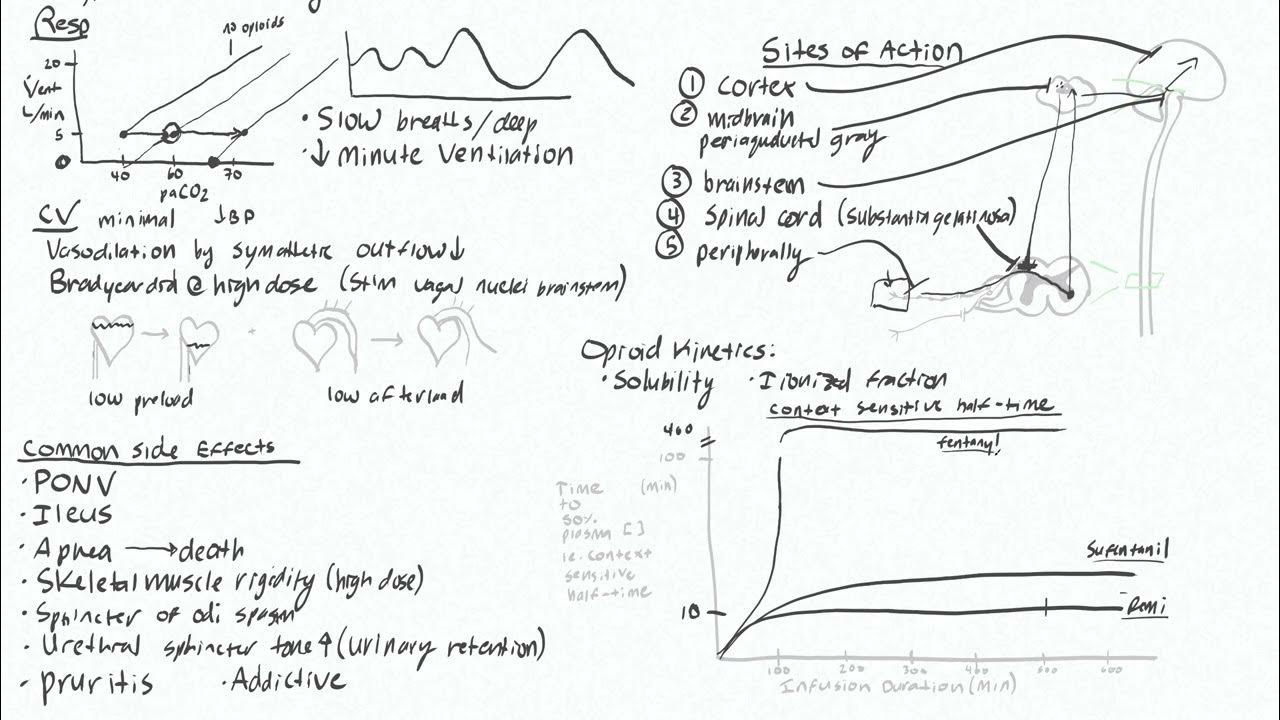 Resp
no opioids
20
Vent
L/min
5
0
40 60 70
paCO2
• Slow breaths/deep
• ↓ Minute Ventilation
CV minimal ↓BP
Vasodilation by symathetic outflow↓
Bradycardia @ high dose (Stim vagal nuclei brainstem)
+
low preload
low afterload
Common side Effects
• PONV
• Ileus
• Apnea → death
• Skeletal muscle rigidity (high dose)
• Sphincter of odi spasm
• Urethral sphincter tone ↑ (urinary retention)
• Pruritis • Addictive
Sites of Action
① Cortex
② midbrain
periaquductal gray
③ brainstem
④ Spinal cord (Substantia gelatinosa)
⑤ peripherally
Opioid Kinetics:
• Solubility • Iionized fraction
Context sensitive half-time
400
100
10
fentanyl
Sufentanil
Remi
Time (min)
to
50%
plasma []
ie. context
sensitive
half-time
100 200 300 400 500 600
Infusion Duration (Min)